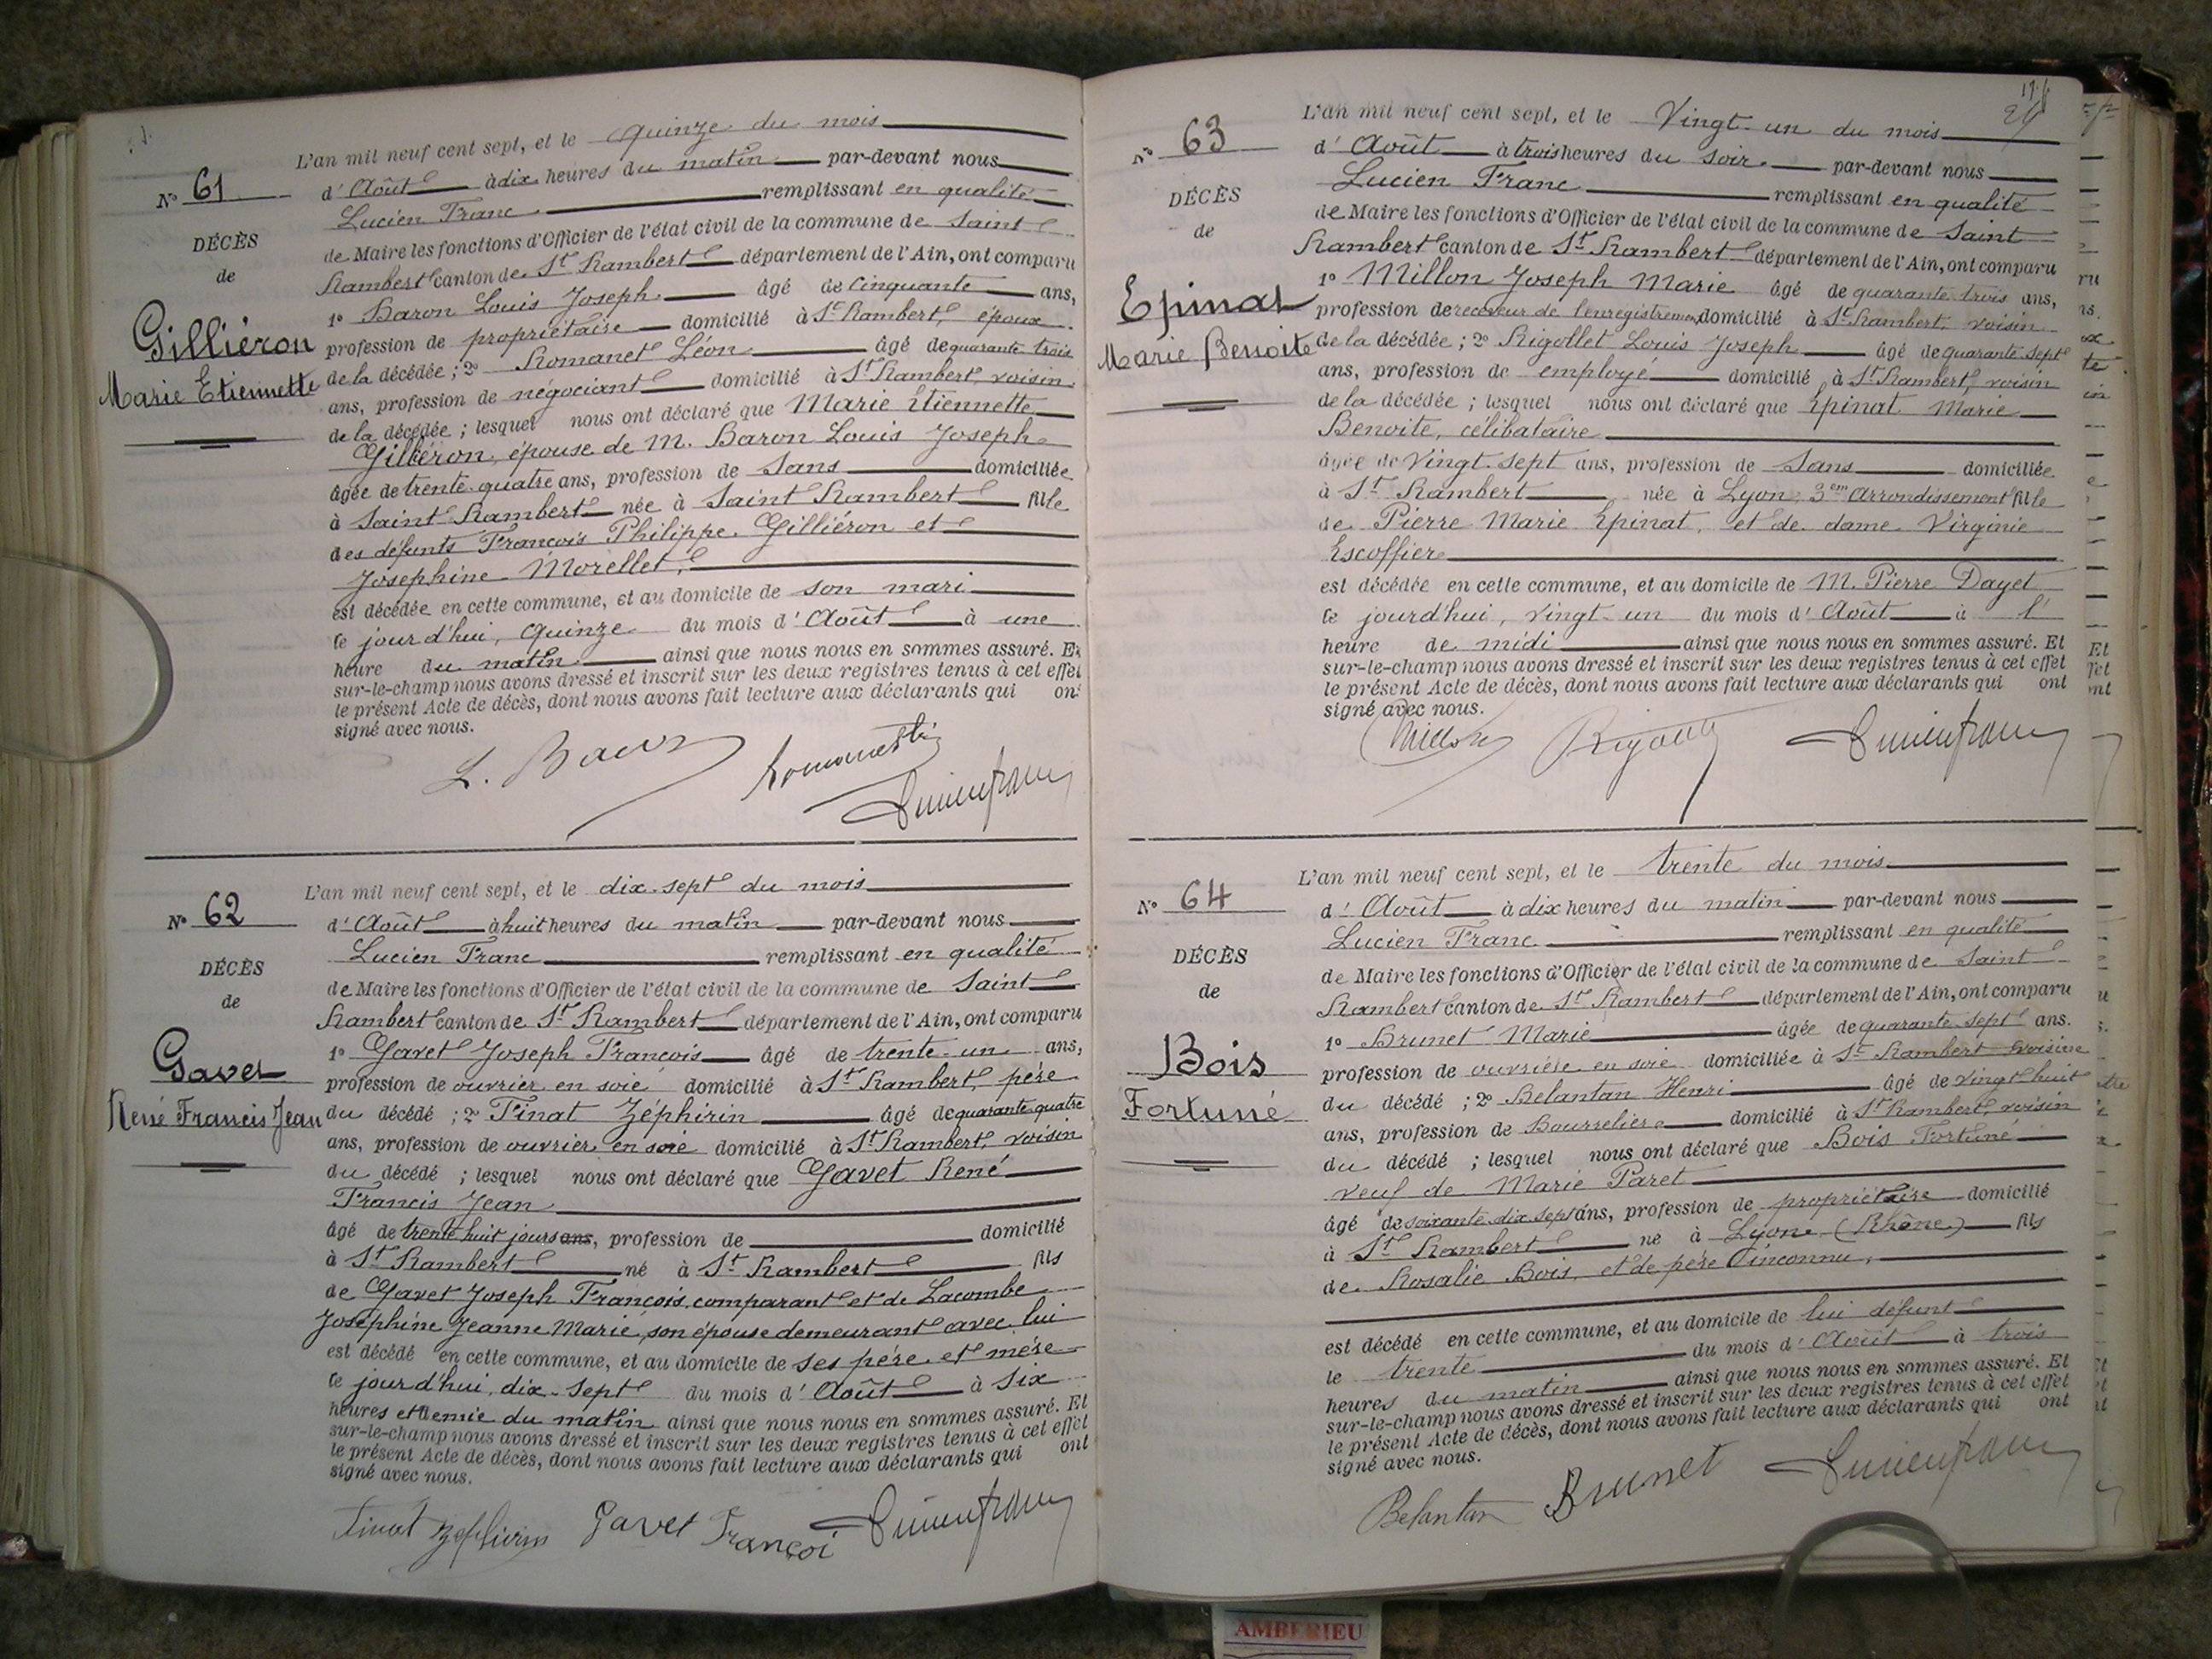 L'an mil neuf cent sept, et le quinze du mois
N° 61
d'Août à dix heures du matin par-devant nous
Lucien Franc remplissant en qualité
DÉCÈS
de
de Maire les fonctions d'Officier de l'état civil de la commune de Saint
Rambert canton de St Rambert département de l'Ain, ont comparu
1° Baron Louis Joseph âgé de cinquante ans,
Gilliéron
profession de propriétaire domicilié à St Rambert, époux
Marie Etiennette
de la décédée ; 2° Romanet Léon âgé de quarante trois
ans, profession de négociant domicilié à St Rambert, voisin
de la décédée ; lesquel nous ont déclaré que Marie Etiennette
Gilliéron, épouse de M. Baron Louis Joseph
âgée de trente-quatre ans, profession de Sans domiciliée
à Saint Rambert née à Saint Rambert fille
des défunts François Philippe Gilliéron et
Josephine Morellet,
est décédée en cette commune, et au domicile de son mari
le jourd'hui, quinze du mois d'Août à une
heure du matin ainsi que nous nous en sommes assuré. Et
sur-le-champ nous avons dressé et inscrit sur les deux registres tenus à cet effet
le présent Acte de décès, dont nous avons fait lecture aux déclarants qui ont
signé avec nous.
L. Baron
L'an mil neuf cent sept, et le dix-sept du mois
N° 62
d'Août à huit heures du matin par-devant nous
Lucien Franc remplissant en qualité
DÉCÈS
de
de Maire les fonctions d'Officier de l'état civil de la commune de Saint
Rambert canton de St Rambert département de l'Ain, ont comparu
1° Gavet Joseph François âgé de trente-un ans,
Gavet
profession de ouvrier en soie domicilié à St Rambert, père
René Francis Jean
du décédé ; 2° Tinat Zéphirin âgé de quarante quatre
ans, profession de ouvrier en soie domicilié à St Rambert, voisin
du décédé ; lesquel nous ont déclaré que Gavet René
Francis Jean
âgé de trente huit jours ans, profession de domicilié
à St Rambert né à St Rambert fils
de Gavet Joseph François, comparant et de Lacombe
Joséphine Jeanne Marie, son épouse demeurant avec lui
est décédé en cette commune, et au domicile de ses père et mère
le jourd'hui, dix-sept du mois d'Août à six
heures et demie du matin ainsi que nous nous en sommes assuré. Et
sur-le-champ nous avons dressé et inscrit sur les deux registres tenus à cet effet
le présent Acte de décès, dont nous avons fait lecture aux déclarants qui ont
signé avec nous.
Tinat Zephirin Gavet Françoi
L'an mil neuf cent sept, et le Vingt-un du mois
N° 63
d'Août à trois heures du soir par-devant nous
Lucien Franc remplissant en qualité
DÉCÈS
de
de Maire les fonctions d'Officier de l'état civil de la commune de Saint
Rambert canton de St Rambert département de l'Ain, ont comparu
1° Millon Joseph Marie âgé de quarante trois ans,
Epinat
profession de receveur de l'enregistrement domicilié à St Rambert, voisin
Marie Benoite
de la décédée ; 2° Rigollet Louis Joseph âgé de quarante sept
ans, profession de employé domicilié à St Rambert, voisin
de la décédée ; lesquel nous ont déclaré que Epinat Marie
Benoite, célibataire
âgée de vingt-sept ans, profession de Sans domiciliée
à St Rambert née à Lyon 3em arrondissement fille
de Pierre Marie Epinat, et de dame Virginie
Escoffier
est décédée en cette commune, et au domicile de M. Pierre Dayet
le jourd'hui, vingt-un du mois d'Août à l'
heure de midi ainsi que nous nous en sommes assuré. Et
sur-le-champ nous avons dressé et inscrit sur les deux registres tenus à cet effet
le présent Acte de décès, dont nous avons fait lecture aux déclarants qui ont
signé avec nous.
Millon
L'an mil neuf cent sept, et le trente du mois
N° 64
d'Août à dix heures du matin par-devant nous
Lucien Franc remplissant en qualité
DÉCÈS
de
de Maire les fonctions d'Officier de l'état civil de la commune de Saint
Rambert canton de St Rambert département de l'Ain, ont comparu
1° Brunet Marie âgée de quarante-sept ans.
Bois
profession de ouvrière en soie domiciliée à St Rambert voisine
Fortuné
du décédé ; 2° Belantan Henri âgé de vingt huit
ans, profession de Bourrelier domicilié à St Rambert, voisin
du décédé ; lesquel nous ont déclaré que Bois Fortuné
veuf de Marie Paret
âgé de soixante-dix-sept ans, profession de propriétaire domicilié
à St Rambert né à Lyon (Rhône) fils
de Rosalie Bois, et de père inconnu,
est décédé en cette commune, et au domicile de lui défunt
le trente du mois d'Août à trois
heures du matin ainsi que nous nous en sommes assuré. Et
sur-le-champ nous avons dressé et inscrit sur les deux registres tenus à cet effet
le présent Acte de décès, dont nous avons fait lecture aux déclarants qui ont
signé avec nous.
Belantan Brunet
AMBERIEU